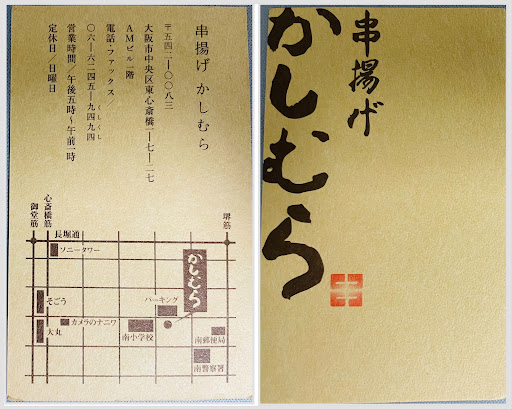 串揚げ かしむら
〒五四二―〇〇八三
大阪市中央区東心斎橋一―七―二七
AMビル一階
電話・ファックス/
〇六―六二四五―九四九四
くしくし
営業時間/午後五時〜午前一時
定休日/日曜日
堺筋
心斎橋筋
御堂筋
長堀通
ソニータワー
かしむら
そごう
パーキング
カメラのナニワ
大丸
南小学校
南郵便局
南警察署
串揚げ
かしむら